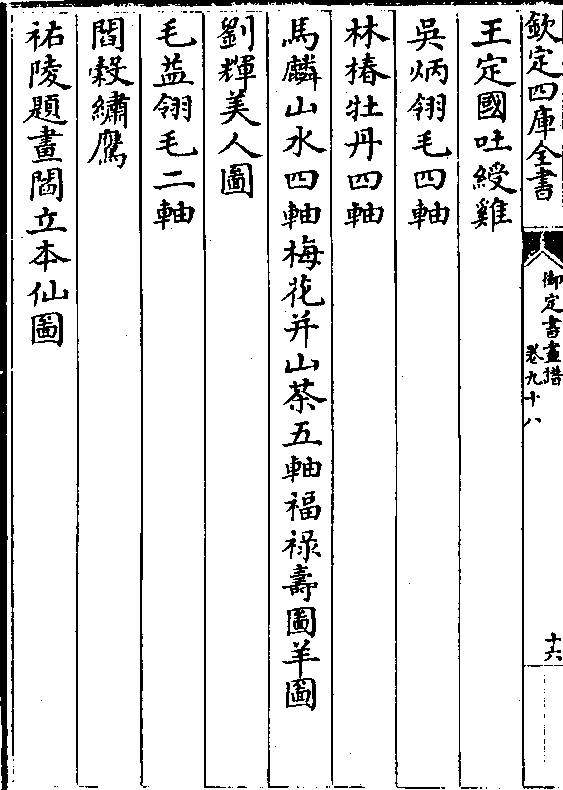 欽定四庫全書
御定書畫譜
卷九十八
十六
王定國吐綬雞
吳炳翎毛四軸
林椿牡丹四軸
馬麟山水四軸梅花并山茶五軸福祿壽圖羊圖
劉輝美人圖
毛益翎毛二軸
閻㝅繡鷹
祐陵題畫閻立本仙圖